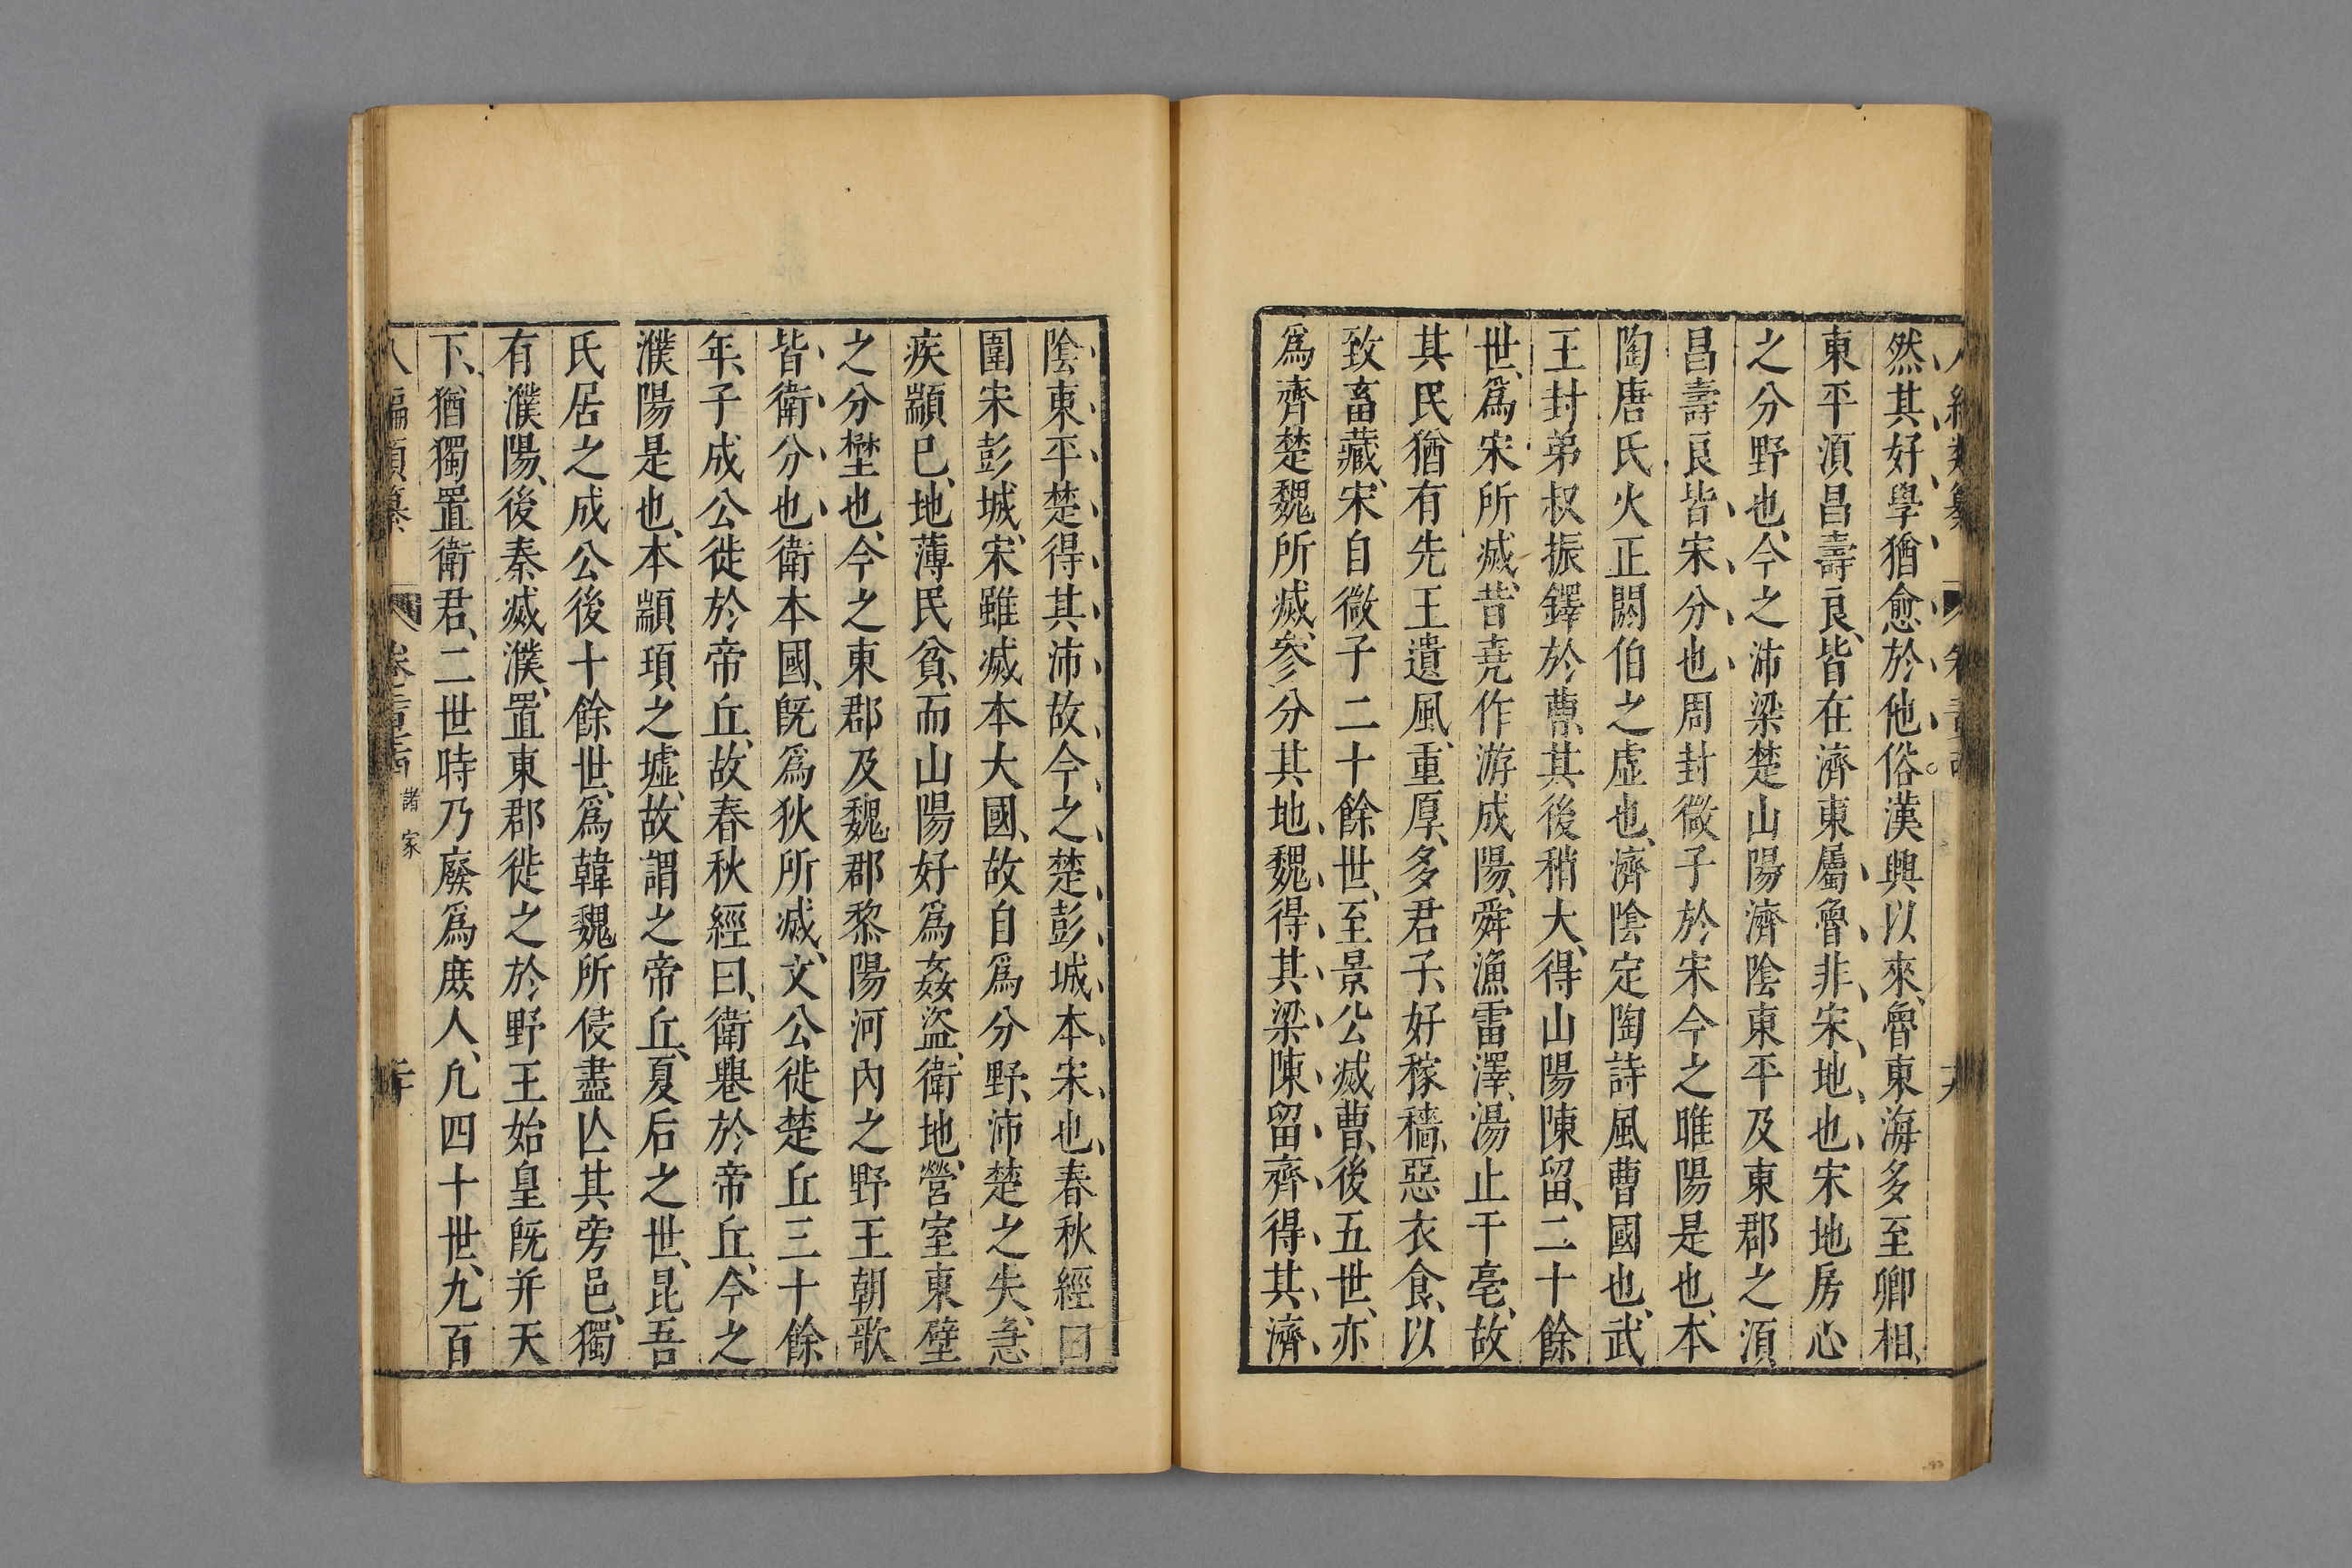 然其好學猶愈於他俗。漢興以來、魯東海多至卿相、
東平湏昌壽良、皆在濟東屬魯非宋地也、宋地房心
之分野也、今之沛梁楚山陽濟陰東平及東郡之湏
昌壽良皆宋分也周封微子於宋今之睢陽是也、本
陶唐氏火正閼伯之虛也、濟陰定陶詩風曹國也、武
王封弟叔振鐸於曹、其後稍大、得山陽陳留、二十餘
世、爲宋所滅、昔堯作游成陽、舜漁雷澤、湯止于亳、故
其民猶有先王遺風、重厚、多君子、好稼穡、惡衣食、以
致畜藏、宋自微子二十餘世、至景公滅曹、後五世、亦
爲齊楚魏所滅、參分其地、魏得其梁陳留、齊得其濟、
陰東平楚得其沛故今之楚彭城本宋也、春秋經曰
圍宋彭城、宋雖滅本大國、故自爲分野、沛楚之失、急
疾顓巳、地薄民貧、而山陽好爲姦盜、衛地、營室東壁
之分壄也、今之東郡及魏郡黎陽河內之野王朝歌
皆衛分也、衛本國、旣爲狄所滅、文公徙楚丘三十餘
年、子成公徙於帝丘、故春秋經曰、衛䙴於帝丘、今之
濮陽是也、本顓頊之墟、故謂之帝丘、夏后之世、昆吾
氏居之成公後十餘世、爲韓魏所侵盡亾其旁邑、獨
有濮陽、後秦滅濮、置東郡徙之於野王始皇旣并天
下、猶獨置衛君、二世時乃廢爲庻人、凢四十世、九百
八編類纂
諸家
二十